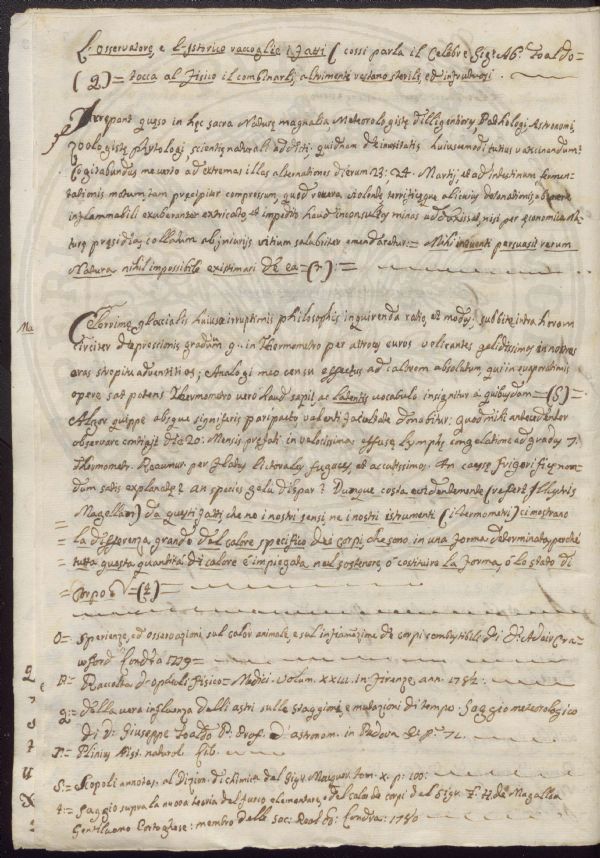 L'osservatore, e l'Istorico raccoglie i fatti ( cossi parla il Celebre Sigr. Ab: Toaldo=
( q )= tocca al Fisico il combinarli, altrimenti restano sterili, ed infruttuosi.
Irrepant quęso in hęc sacra Naturę magnalia, Meteorologistę dilligentiory, Pathologi, Astronomi,
Zoologistę, phytologi, scientię naturali additi; quidnam de inusitatis huiusemodi tutius vaticinandum:
Cogitabundus me verto ad extremas illas alternationes dierum 23: 24. Martij, et ad intestinum fermen-
tationis motum, tam pręcipiter compressum, quod revera violente terrificęque alicuius detonationis, opere
inflammabili exuberanter extricato, et impedito haud inconsultos minas adduxisset, nisi per ęconomica Na-
turę pręsidia, collatum ab injurijs vitium salubriter emendaretur:= Mihi intuenti persuasit rerum
Natura nihil impossibile existimari de ea=( r ):=
Na
Celerrimę glacialis huius irruptionis philosophis inquirenda ratio, et modus; subbito intra horam
circiter depressionis graduum 9.. in Thermometro per atroces euros volitantes gelidissimos in nostras
oras strepitu adventitios; Analogi meo censu effectus ad calorem absolutum, qui in evaporationis
opere sat potens Thermometro vero haud sapit, ac latentis vocabulo insignitur a quibusdam=( S )=
Algor quippe absque signifuris pari pacto valenti facultate donabitur: quod mihi antecedenter
observare contigit die 20: Mensis pręfati in velocissima effusę lymphę congelatione ad gradus 7:
Thermometr. Reaumur per flatus littorales fugaces et accutissimos. An causę frigorificę non-
dum satis explanatę? an species gelu dispar? Dunque costa evidentemente ( refert Illustris
Magellan ) da questi fatti che ne i nostri sensi ne i nostri istrumenti ( i termometri ) ci mostrano
= la differenza grande del calore specifico dei corpi, che sono in una forma determinata, perchè
= tutta questa quantità di calore è impiegata nell sostenere, o costituire la forma, o lo stato di
= Corpo =( t )=
O= Sperienze, ed osservazioni sul calor animale, e sul infiamazione de corpi combustibili di Dr. Adair Cra-
wford Londra 1779=
P= Raccolta d'opusculi Fisico= Medici. Volum. XXIII. in Firenze, ann. 1782:
q= Della vera influenza delli astri sulle staggioni, e mutazioni di tempo. Saggio meteorologico
di D. Giuseppe Toaldo P. Prof. d'astronom. in Padova. 71.
r= Plinius Hist. natural. lib.
S= Scopoli annotaz. al Dizion. di chimica del Sigr. Macquer tom. X. p: 100:
t= Saggio supra la nuova teoria del fuoco elementare, e del calo de corpi del Sigr. F. H. de Magellan
Gentiluomo Portoghese: membro delle Soc: Real di Londra: 1780